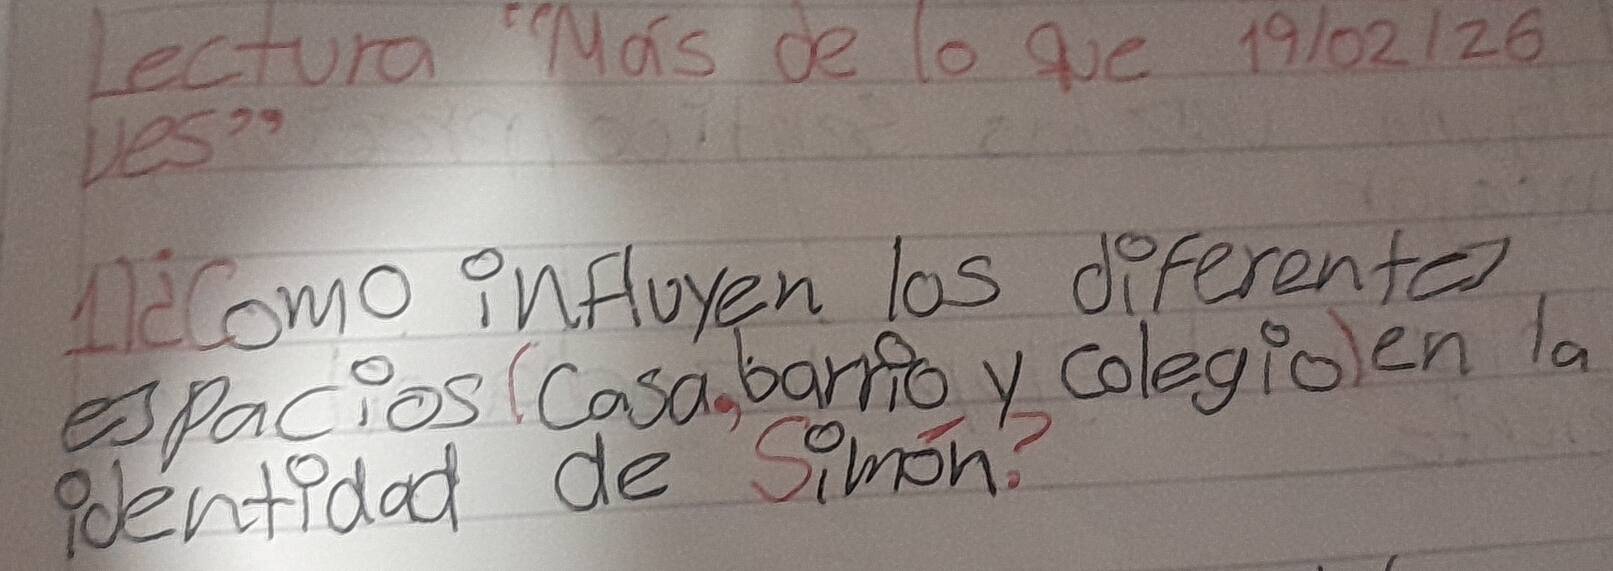 Lectura "Más de lo que 19/02/26
ves"
1)¿Como influyen los diferentes
espacios (Casa, barrio y colegio) en la
identidad de Simón?